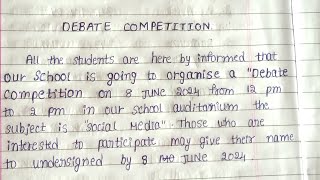 DEBATE COMPETITION.
All the students are here by informed that
our school is going to organise a "Debate
competition on 8 june 2024 from 12 pm
to 2 pm in our school auditorium the
subject is "social media". Those who are
interested to participate may give their name
to undensigned by 8 JUNE 2024.